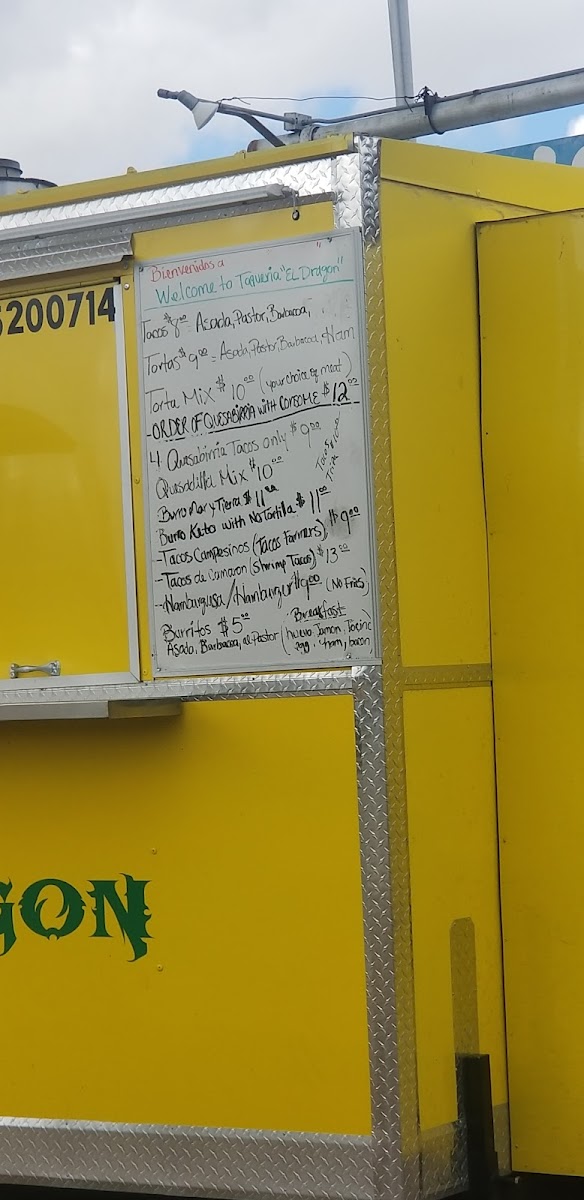 5200714
Bienvenidos a " "
Welcome to Taqueria "EL Dragon"
Tacos $8.00 = Asada, Pastor, Barbacoa,
Tortas $9.00 = Asada, Pastor, Barbacoa, Ham
Torta Mix $10.00 (your choice of meat)
-ORDER OF QUESABIRRIA with CONSOME $12.00
4 Quesabirria Tacos only $9.00
Quesadilla Mix $10.00
Tacos
Tripa
Burro Mar y Tierra $11.00
Burro Keto with No Tortilla $11.00
-Tacos Campesinos (Tacos Farmers) $9.00
-Tacos de Camaron (Shrimp Tacos) $13.00
-Hamburguesa/Hamburgur $9.00 (NO Fries)
Burritos $5.00 Breakfast
Asado, Barbacoa, al Pastor (huevo Jamon, Tocino
egg, ham, bacon
GON